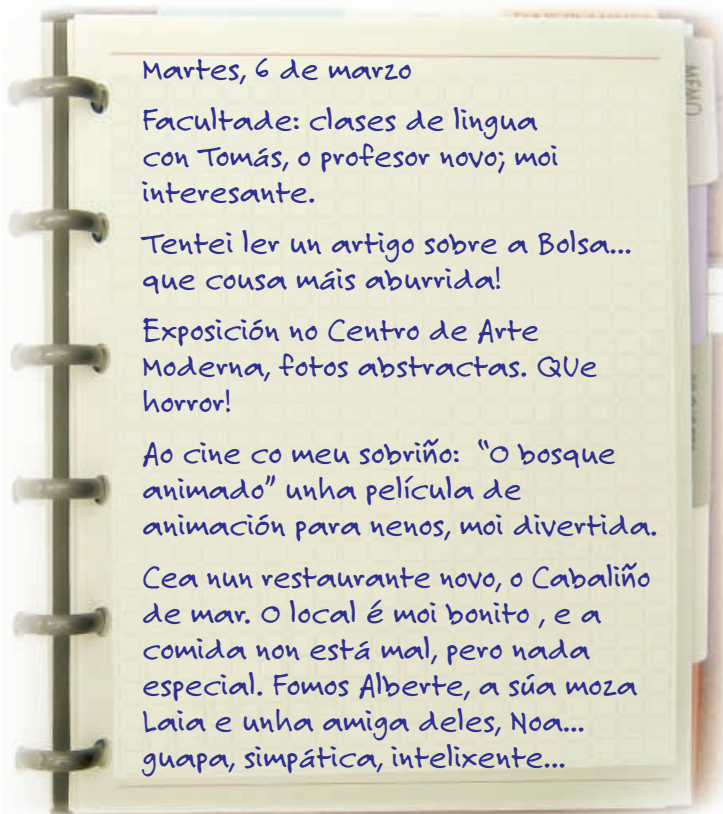 Martes, 6 de marzo
Facultade: clases de lingua
con Tomás, o profesor novo; moi
interesante.
Tentei ler un artigo sobre a Bolsa...
que cousa máis aburrida!
Exposición no Centro de Arte
Moderna, fotos abstractas. QUe
horror!
Ao cine co meu sobriño: “O bosque
animado” unha película de
animación para nenos, moi divertida.
Cea nun restaurante novo, o Cabaliño
de mar. O local é moi bonito , e a
comida non está mal, pero nada
especial. Fomos Alberte, a súa moza
Laia e unha amiga deles, Noa...
guapa, simpática, intelixente...
MEMO